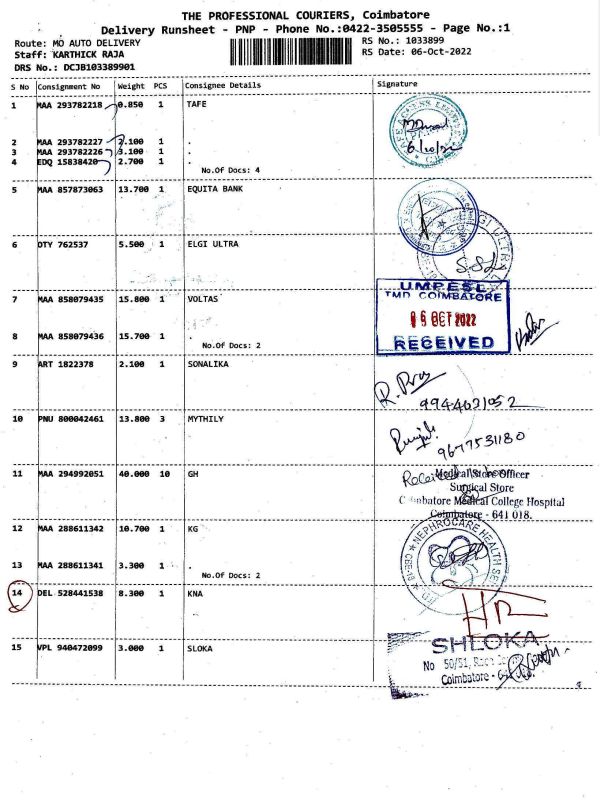 THE PROFESSIONAL COURIERS, Coimbatore
Delivery Runsheet - PNP - Phone No.:0422-3505555 - Page No.:1
Route: MO AUTO DELIVERY
RS No.: 1033899
Staff: KARTHICK RAJA
RS Date: 06-Oct-2022
DRS No.: DCJB103389901
S No Consignment No Weight PCS Consignee Details Signature
1 MAA 293782218 0.850 1 TAFE
2 MAA 293782227 2.100 1 .
3 MAA 293782226 3.100 1 .
4 EDQ 15838420 2.700 1 .
No.Of Docs: 4
6/10/22
5 MAA 857873063 13.700 1 EQUITA BANK
6 OTY 762537 5.500 1 ELGI ULTRA
7 MAA 858079435 15.800 1 VOLTAS
8 MAA 858079436 15.700 1 .
No.Of Docs: 2
UMPESL
TMD COIMBATORE
06 OCT 2022
RECEIVED
9 ART 1822378 2.100 1 SONALIKA
9944631052
10 PNU 800042461 13.800 3 MYTHILY
9677531180
11 MAA 294992051 40.000 10 GH
Medical Store Officer
Surgical Store
Coimbatore Medical College Hospital
Coimbatore - 641 018.
12 MAA 288611342 10.700 1 KG
13 MAA 288611341 3.300 1 .
No.Of Docs: 2
NEPHROCARE HEALTH
14 DEL 528441538 8.300 1 KNA
15 VPL 940472099 3.000 1 SLOKA
SHLOKA
No 50/51,
Coimbatore -